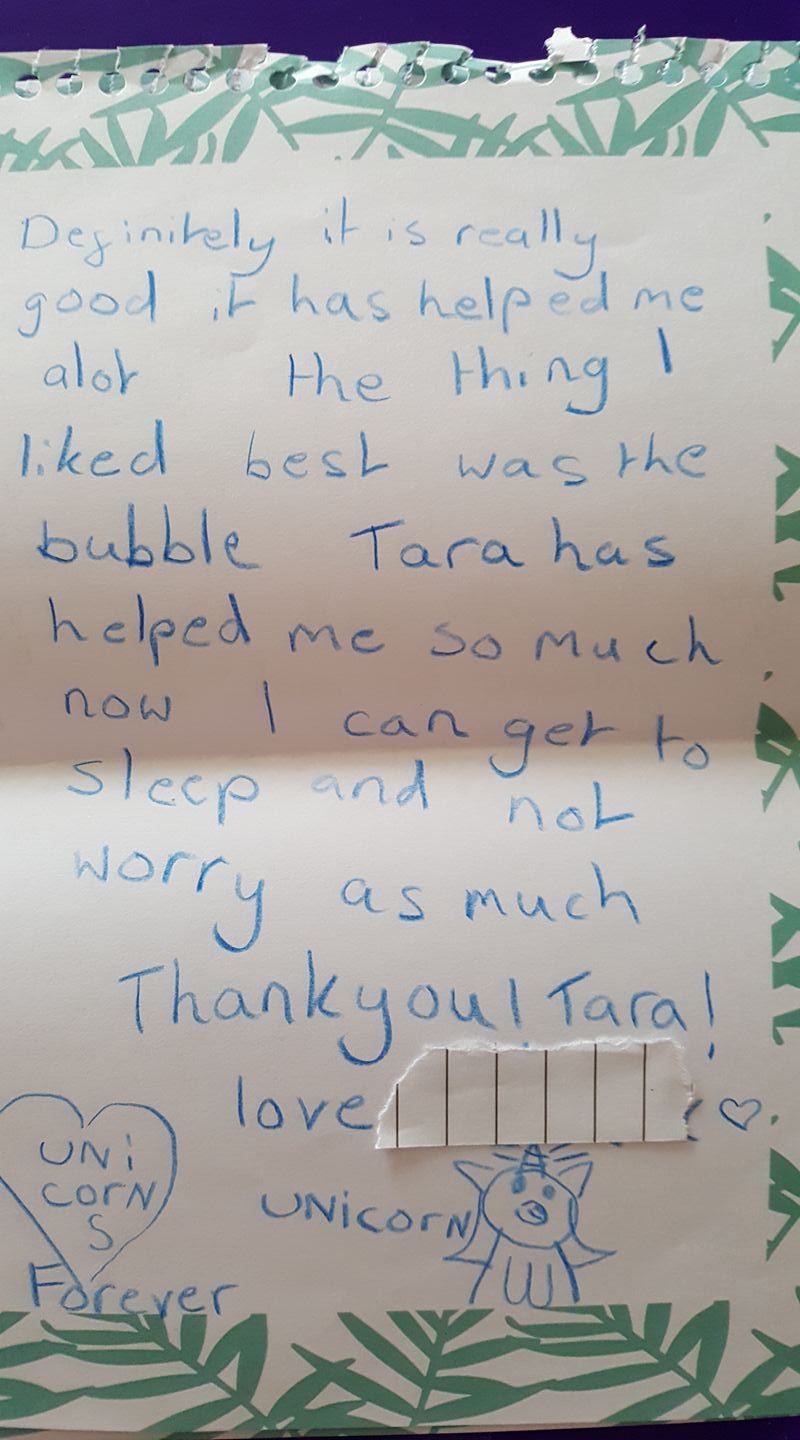 Definitely it is really
good it has helped me
alot the thing I
liked best was the
bubble Tara has
helped me so much
now I can get to
sleep and not
worry as much
Thankyou! Tara!
love
UNi
corN
S
Forever
UNicorN